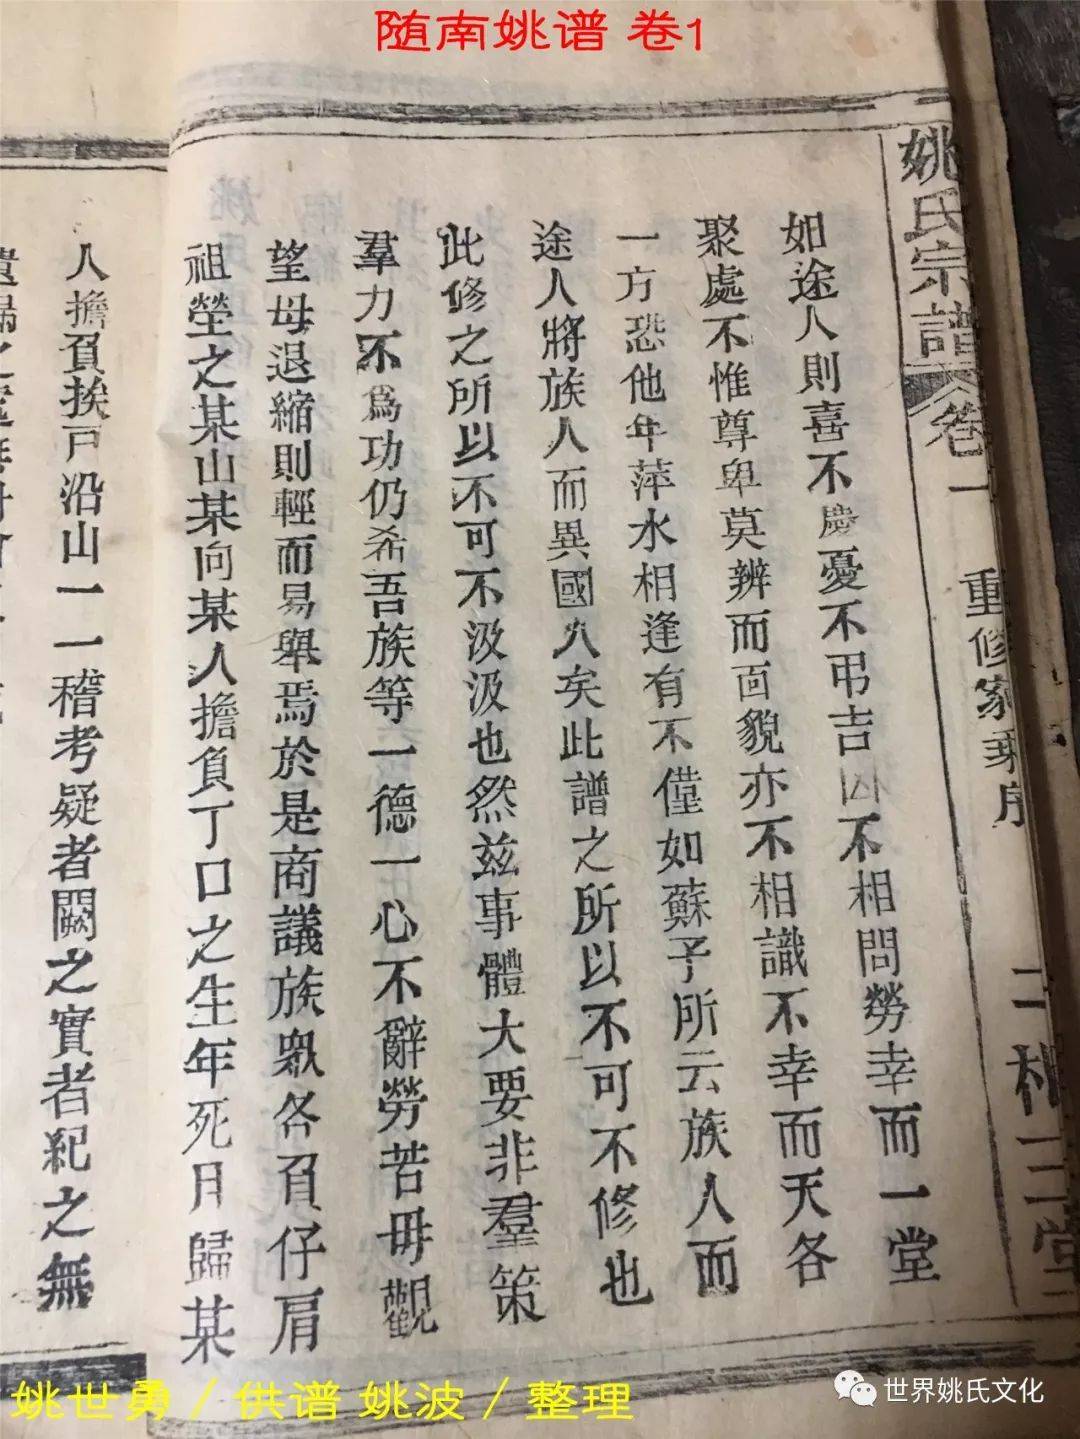 随南姚谱 卷1
姚氏宗譜 卷一 重修家乘序 二 三堂
如途人則喜不慶憂不弔吉凶不相問勞幸而一堂
聚處不惟尊卑莫辨而面貌亦不相識不幸而天各
一方恐他年萍水相逢有不僅如蘇子所云族人而
途人將族人而異國人矣此譜之所以不可不修也
此修之所以不可不汲汲也然兹事體大要非羣策
羣力不爲功仍希吾族等一德一心不辭勞苦毋觀
望毋退縮則輕而易舉焉於是商議族眾各負仔肩
祖塋之某山某向某人擔負丁口之生年死月歸某
人擔負挨戸沿山一一稽考疑者闕之實者紀之無
遺歸之
姚世勇／供谱 姚波／整理
世界姚氏文化